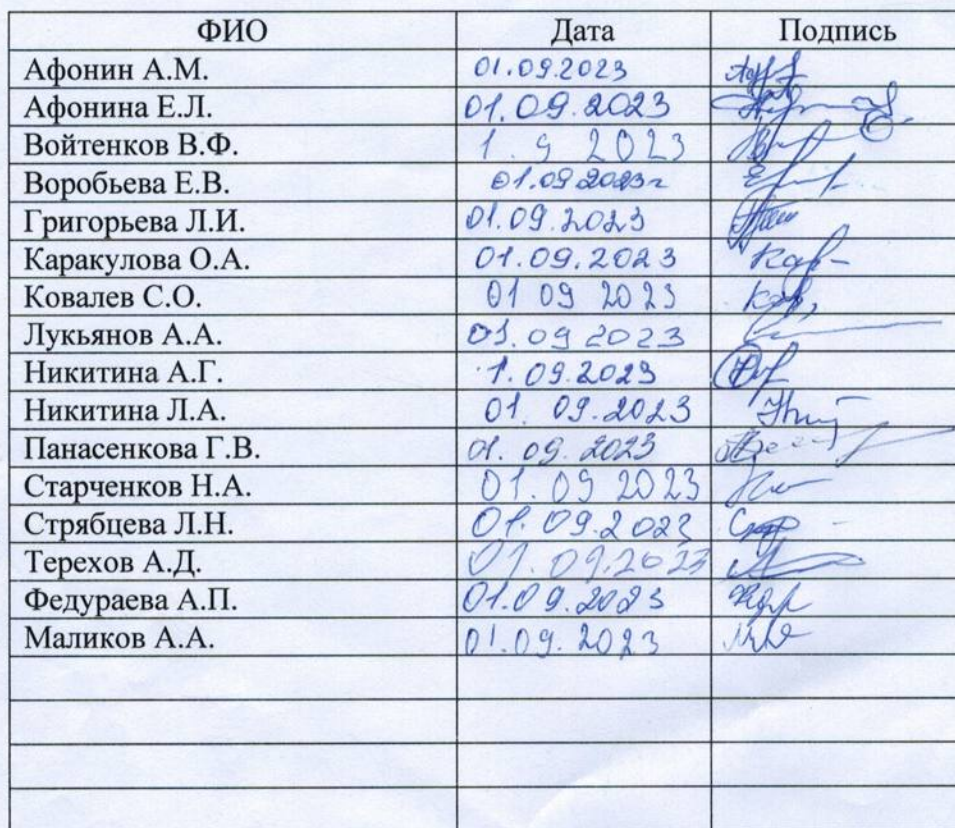 ФИО Дата Подпись
Афонин А.М. 01.09.2023
Афонина Е.Л. 01.09.2023
Войтенков В.Ф. 1. 9 2023
Воробьева Е.В. 01.09 2023г
Григорьева Л.И. 01.09.2023
Каракулова О.А. 01.09.2023
Ковалев С.О. 01 09 2023
Лукьянов А.А. 01.09 2023
Никитина А.Г. 1.09.2023
Никитина Л.А. 01. 09.2023
Панасенкова Г.В. 01. 09. 2023
Старченков Н.А. 01.09 2023
Стрябцева Л.Н. 01.09.2023
Терехов А.Д. 01.09.2023
Федураева А.П. 01.09.2023
Маликов А.А. 01.09.2023